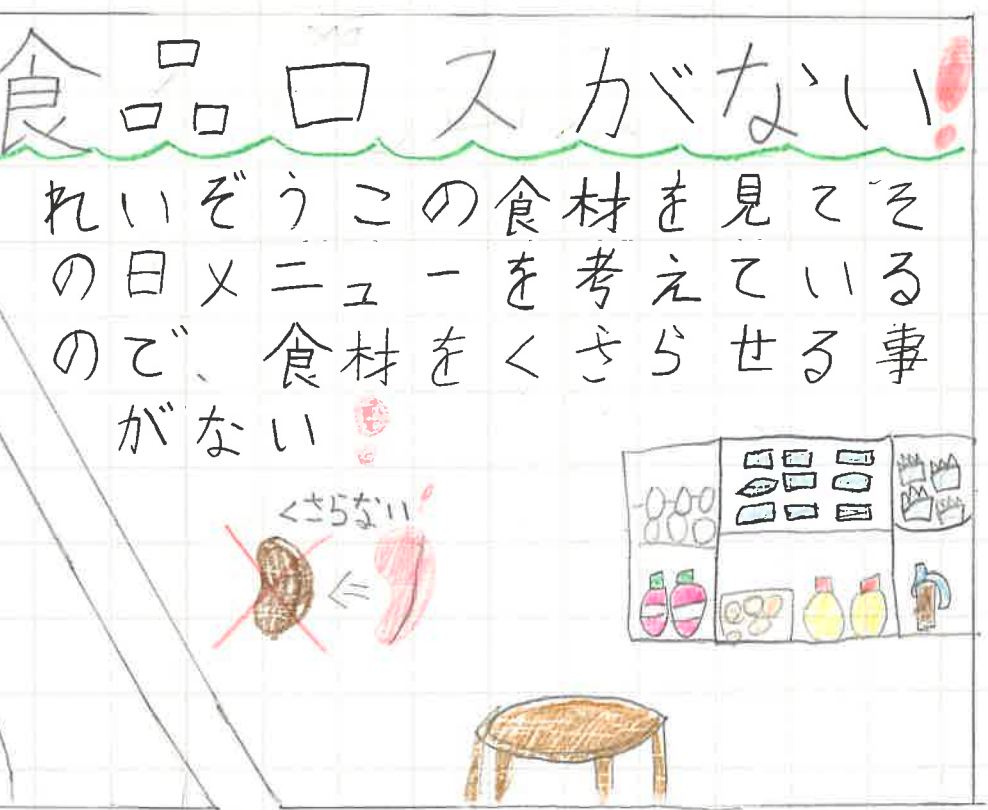 食品ロスがない!
れいぞうこの食材を見てそ
の日メニューを考えている
ので、食材をくさらせる事
がない!
くさらない!